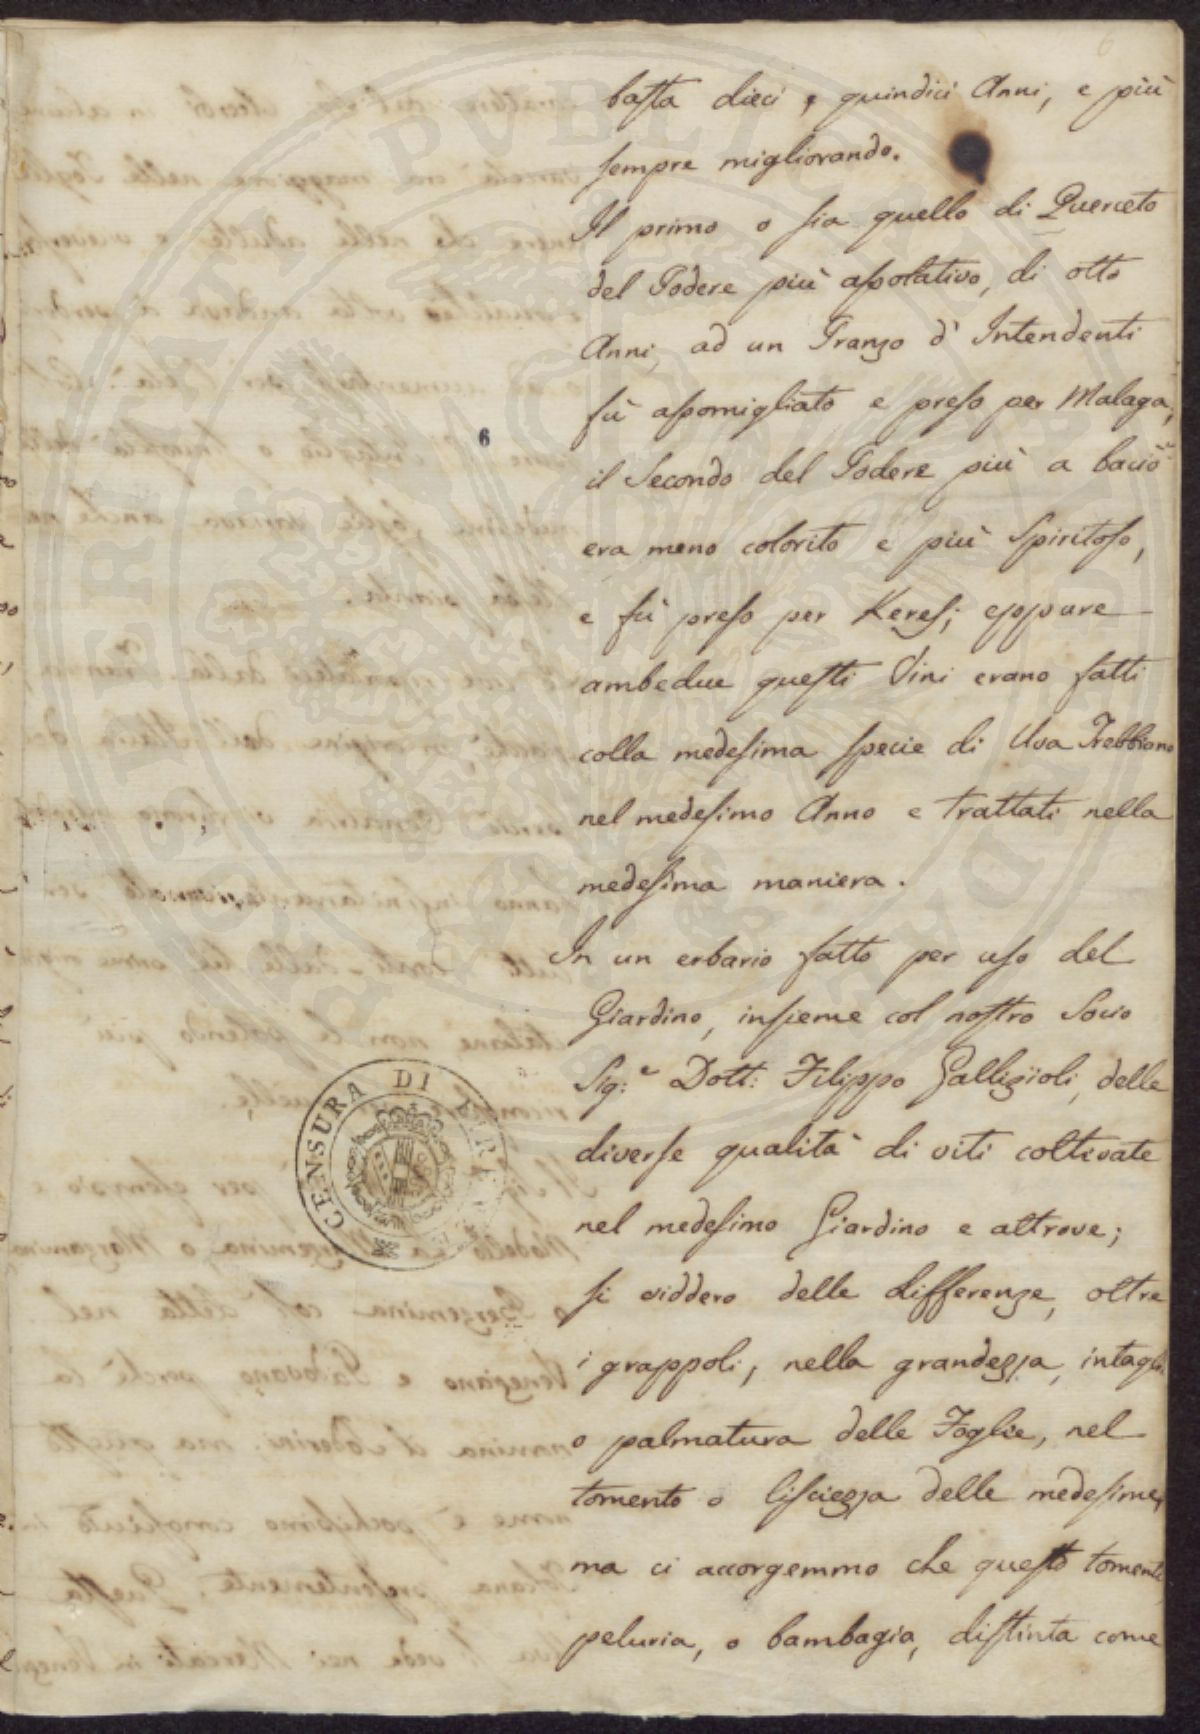 6
basta dieci, quindici Anni, e più
sempre migliorando.
Il primo o sia quello di Querceto
del Podere più assolativo, di otto
Anni, ad un Pranzo d' Intendenti
fù assomigliato e preso per Malaga;
il Secondo del Podere più a bacio
era meno colorito e più Spiritoso,
e fù preso per Keres; eppure
ambedue questi Vini erano fatti
colla medesima specie di Uva Trebbiano
nel medesimo Anno e trattati nella
medesima maniera.
In un erbario fatto per uso del
Giardino, insieme col nostro Socio
Sig:e Dott: Filippo Gallizioli, delle
diverse qualità di viti coltivate
nel medesimo Giardino e altrove;
si viddero delle differenze, oltre
i grappoli, nella grandezza, intagli
o palmatura delle Foglie, nel
tomento o lisciezza delle medesime,
ma ci accorgemmo che questo tomento
peluria, o bambagia, distinta come
6
CENSURA DI